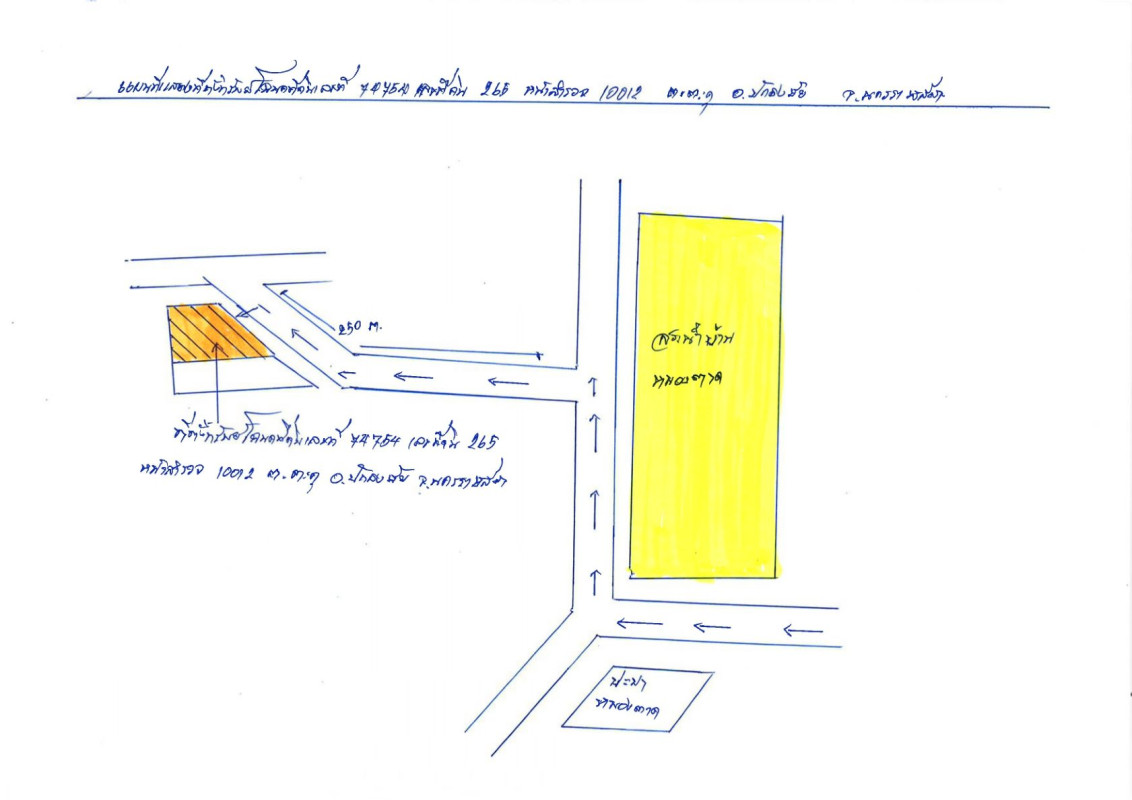 แผนที่แสดงที่ตั้งทรัพย์ โฉนดที่ดินเลขที่ 74754 เลขที่ดิน 265 หน้าสำรวจ 10012 ต.ตะคุ อ.ปักธงชัย จ.นครราชสีมา
250 ม.
สระน้ำบ้าน
หนองตาด
ที่ตั้งทรัพย์ โฉนดที่ดินเลขที่ 74754 เลขที่ดิน 265
หน้าสำรวจ 10012 ต.ตะคุ อ.ปักธงชัย จ.นครราชสีมา
ประปา
หนองตาด